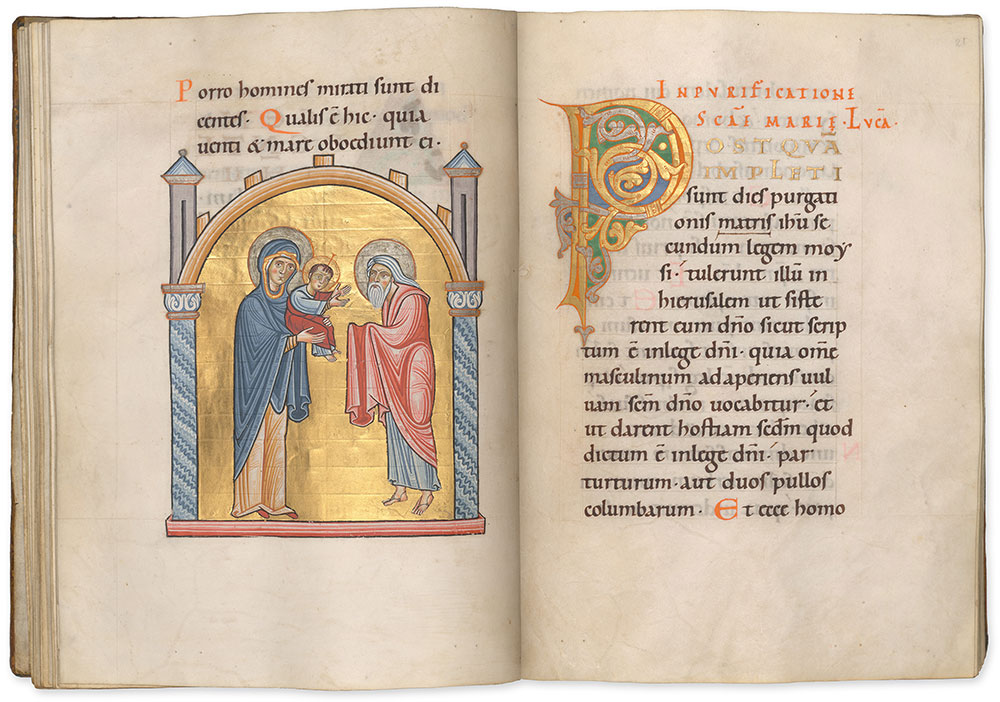 Porro homines mirati sunt di
centes· Qualis ē hic· quia
uenti & mare obocdiunt ei·
INPVRIFICATIONE
SCĀE MARIĘ· LVCĀ·
POSTQVĀ
IMPLETI
sunt dies purgati
onis matris ihū se
cundum legem moy
si· tulerunt illū in
hierusalem ut siste
rent eum dn̄o sicut scrip
tum ē inlege dn̄i· quia om̄e
masculinum adaperiens uul
uam sc̄m dn̄o uocabitur· et
ut darent hostiam sedm̄ quod
dictum ē inlege dn̄i· par
turturum· aut duos pullos
columbarum· Et ecce homo